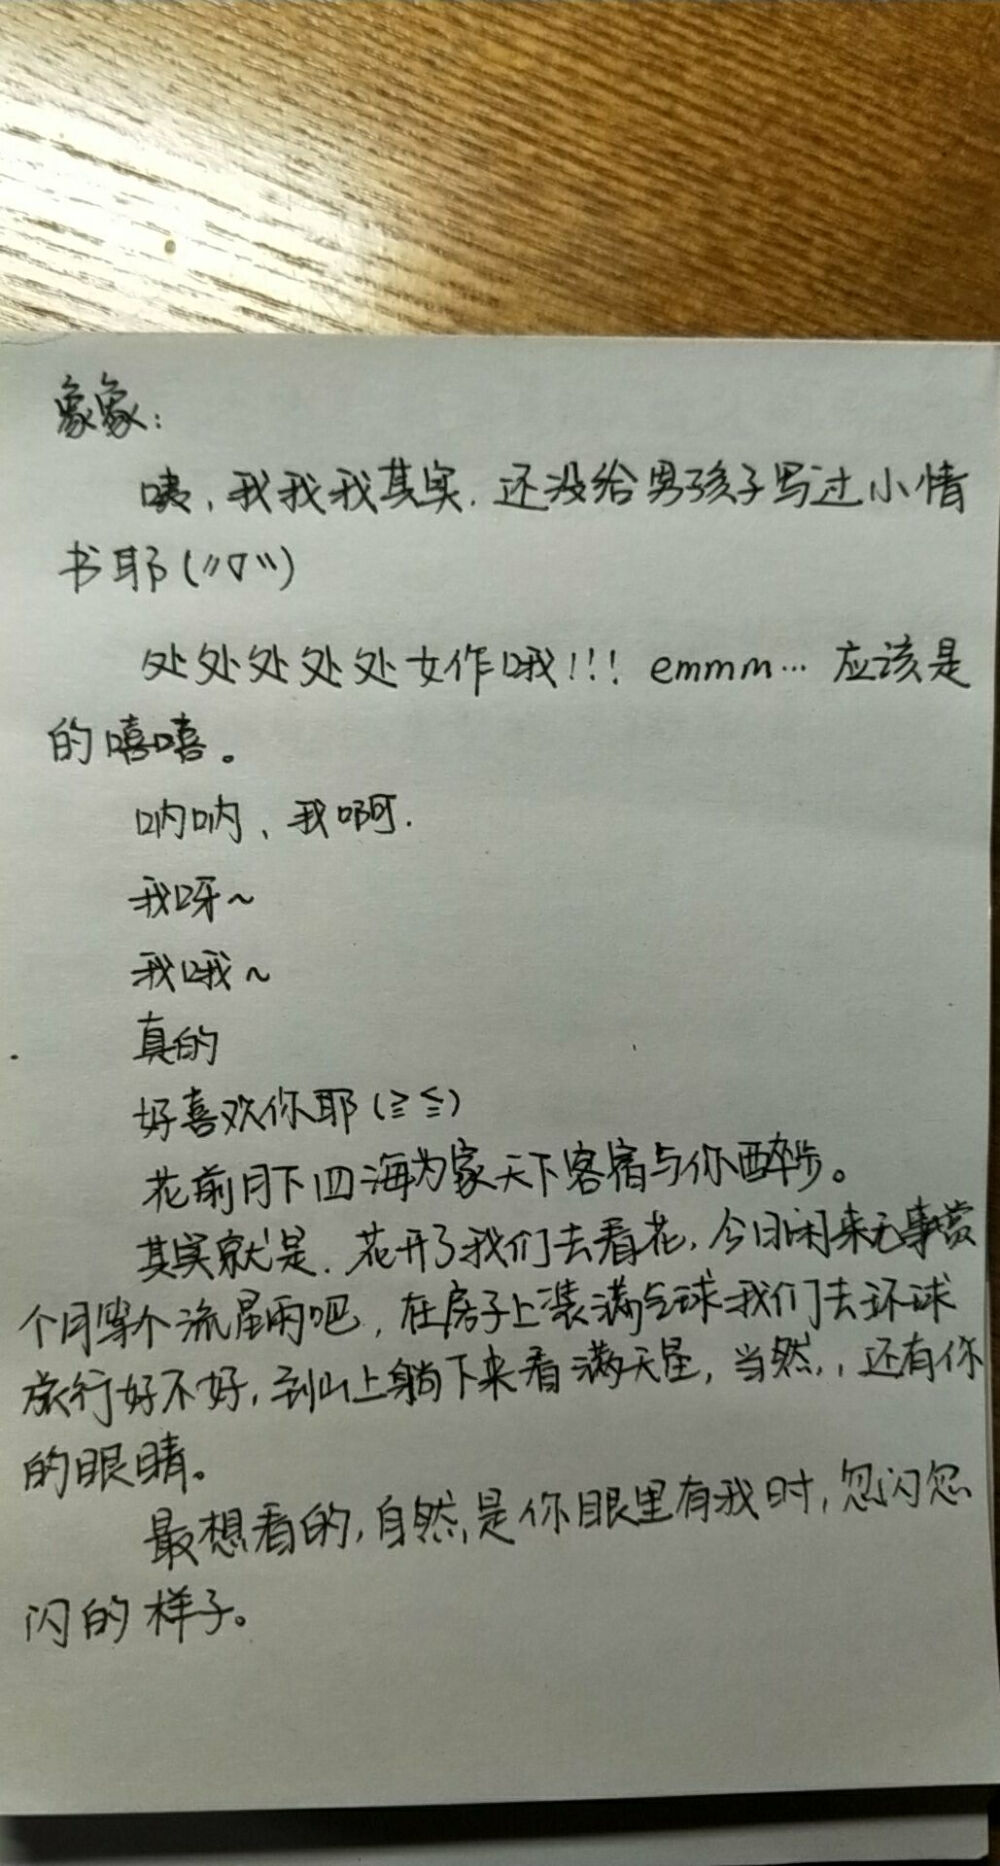 象象：
咦，我我我其实，还没给男孩子写过小情
书耶(〃▽〃)
处处处处处女作哦!!! emmm… 应该是
的嘻嘻。
呐呐、我啊.
我呀~
我哦~
真的
好喜欢你耶(≧≦)
花前月下四海为家天下客宿与你醉步。
其实就是，花开了我们去看花，今日闲来无事赏
个月等个流星雨吧，在房子上装满气球我们去环球
旅行好不好，到山上躺下来看满天星，当然，，还有你
的眼睛。
最想看的，自然，是你眼里有我时，忽闪忽
闪的样子。